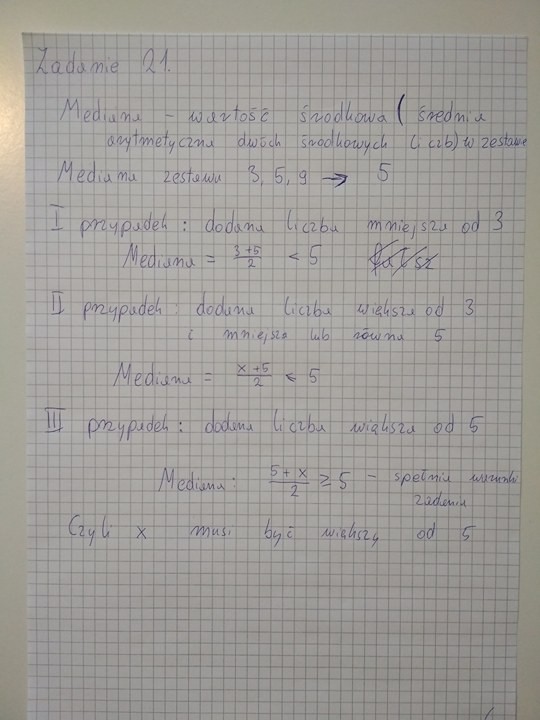 Zadanie 21.
Mediana - wartość środkowa ( średnia
arytmetyczna dwóch środkowych liczb) w zestawie
Mediana zestawu 3, 5, 9 → 5
I przypadek: dodana liczba mniejsza od 3
Mediana = 3+5/2 < 5
II przypadek: dodana liczba większa od 3
i mniejsza lub równa 5
Mediana = x+5/2 < 5
III przypadek: dodana liczba większa od 5
Mediana: 5+x/2 ≥ 5 - spełnia warunki
zadania
Czyli x musi być większy od 5